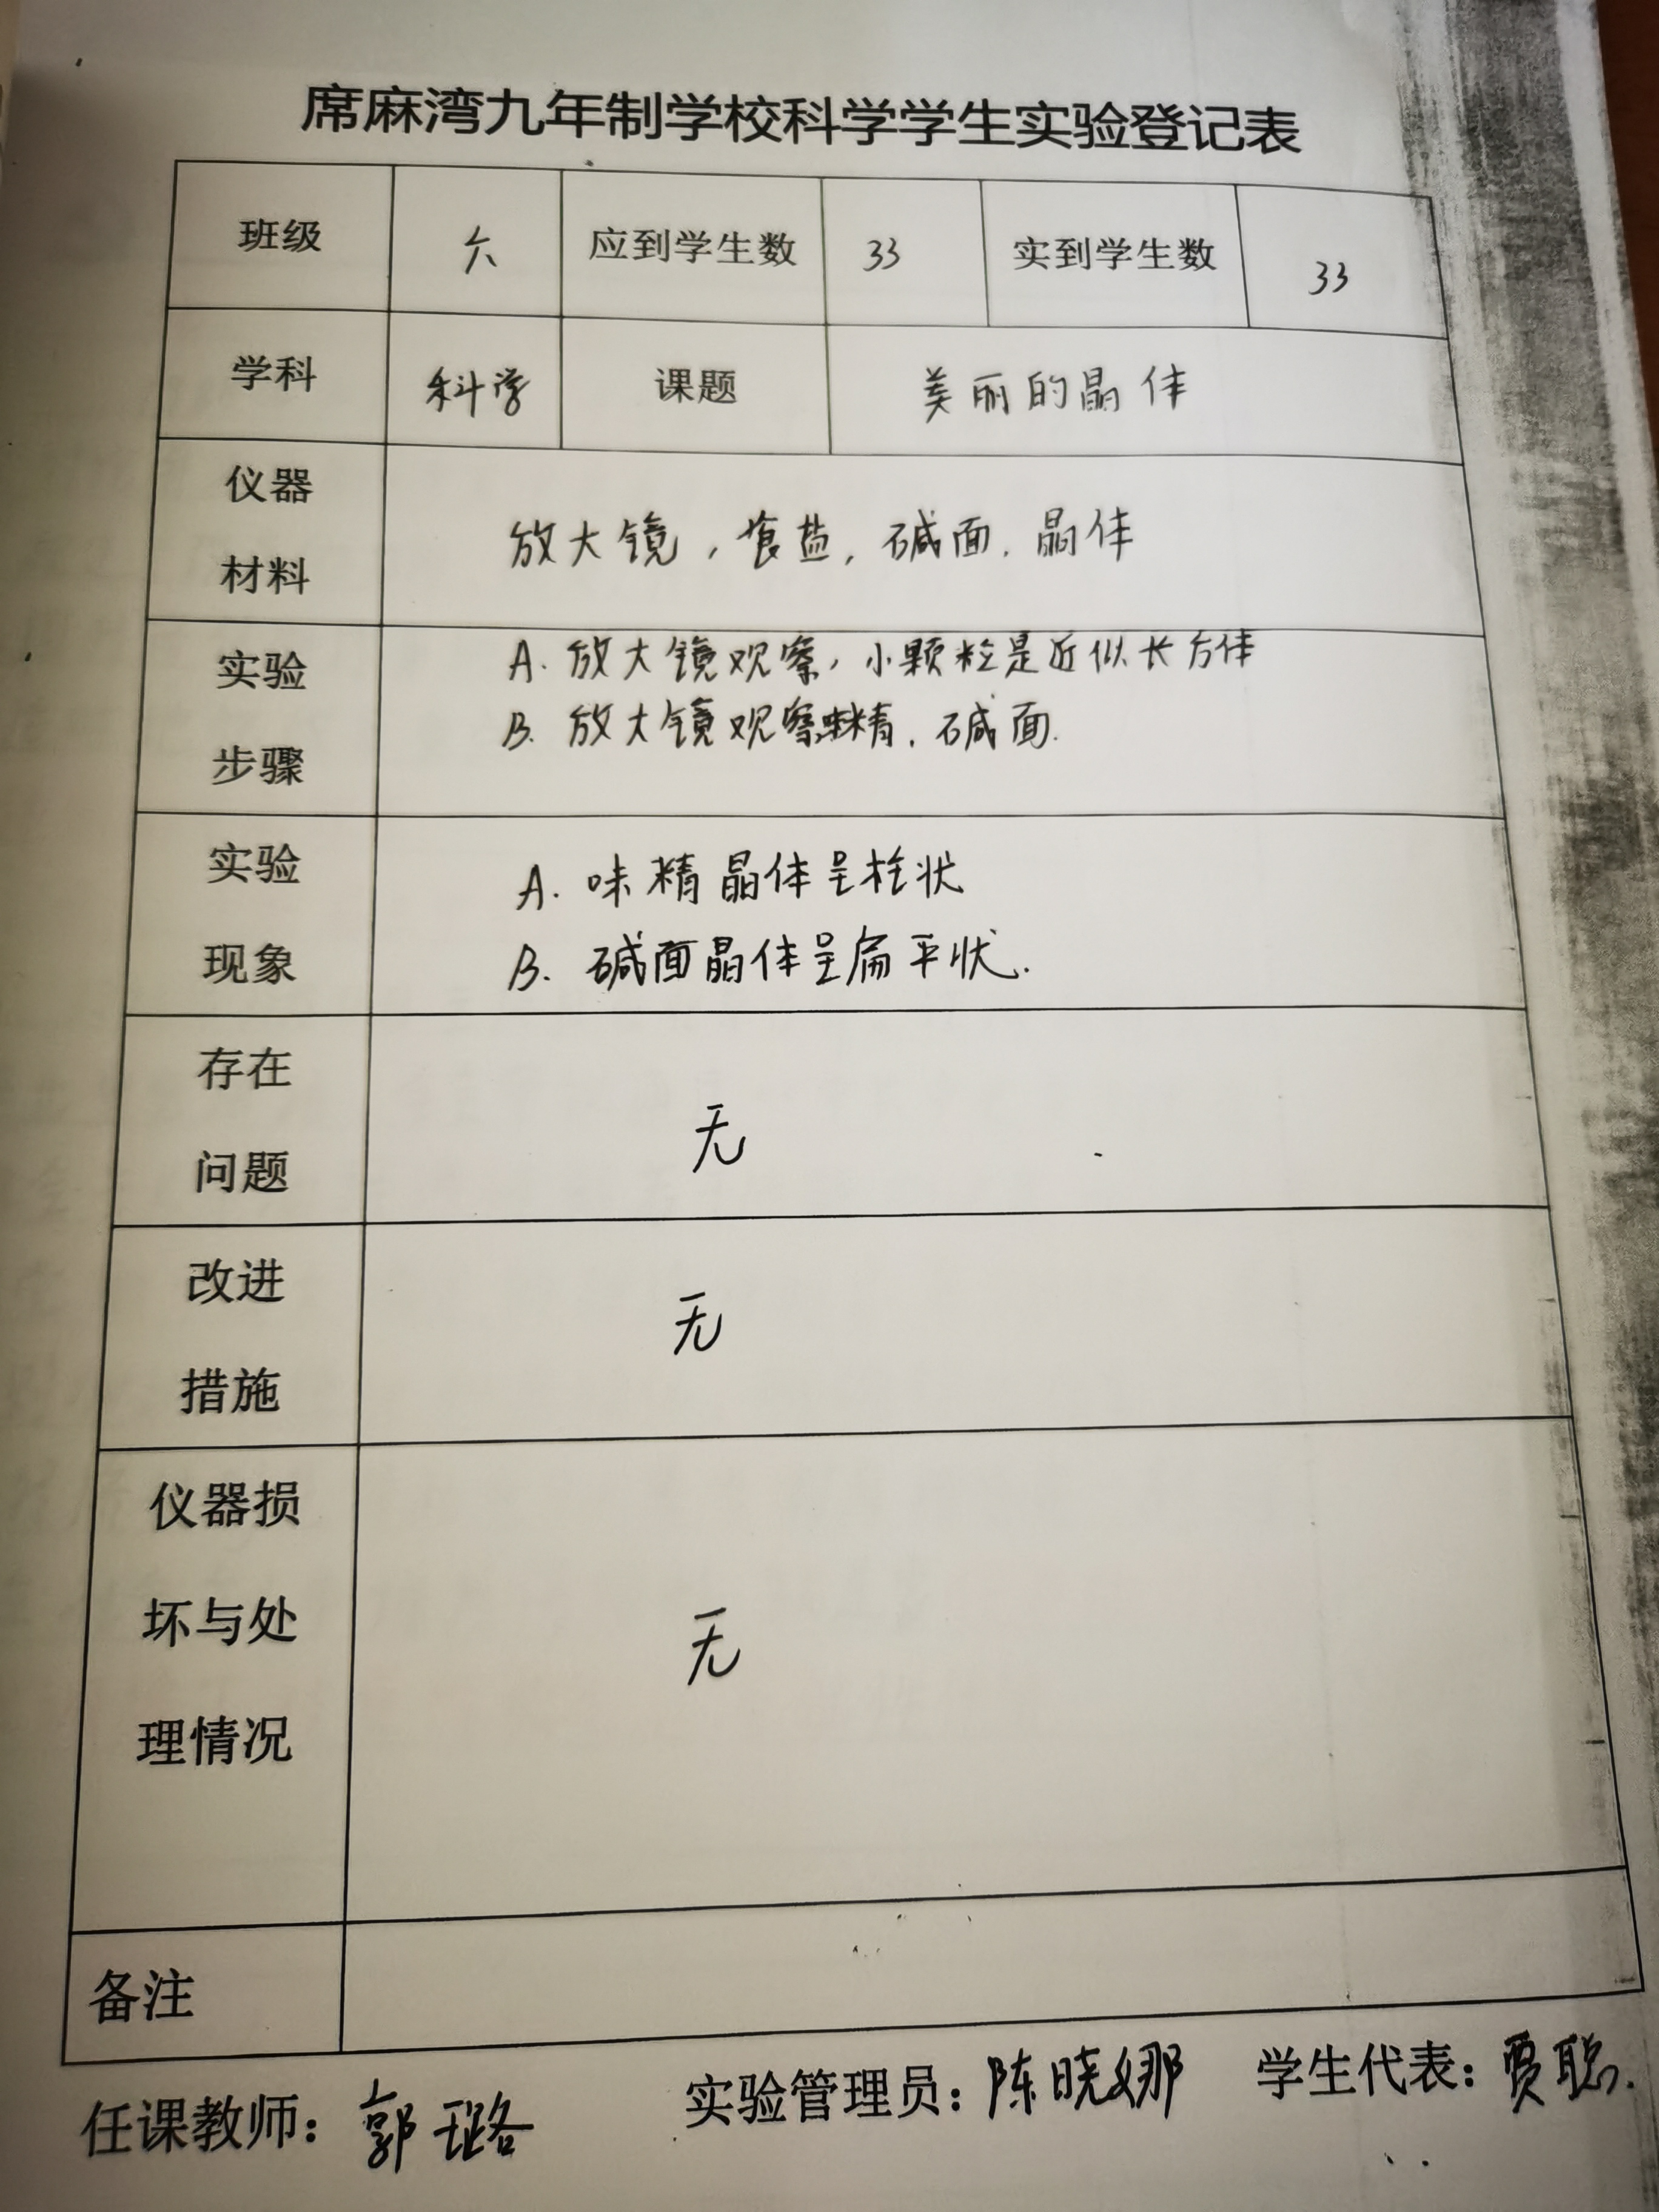 席麻湾九年制学校科学学生实验登记表
班级 六 应到学生数 33 实到学生数 33
学科 科学 课题 美丽的晶体
仪器
材料
放大镜，食盐，碱面．晶体
实验
步骤
A. 放大镜观察，小颗粒是近似长方体
B. 放大镜观察味精．碱面.
实验
现象
A. 味精晶体呈柱状
B. 碱面晶体呈扁平状.
存在
问题
无
改进
措施
无
仪器损
坏与处
理情况
无
备注
任课教师：郭璐 实验管理员：陈晓娜 学生代表：贾聪.